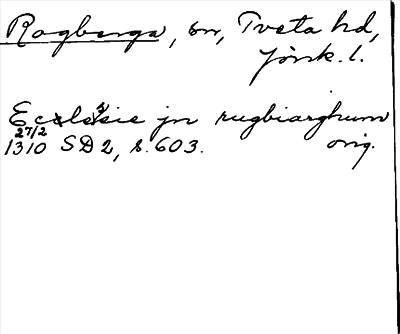 Rogberga, sn, Tveta hd,
Jönk. l.
Ecclesie jn rugbiarghum
27/2
1310 SD 2, s. 603. orig.